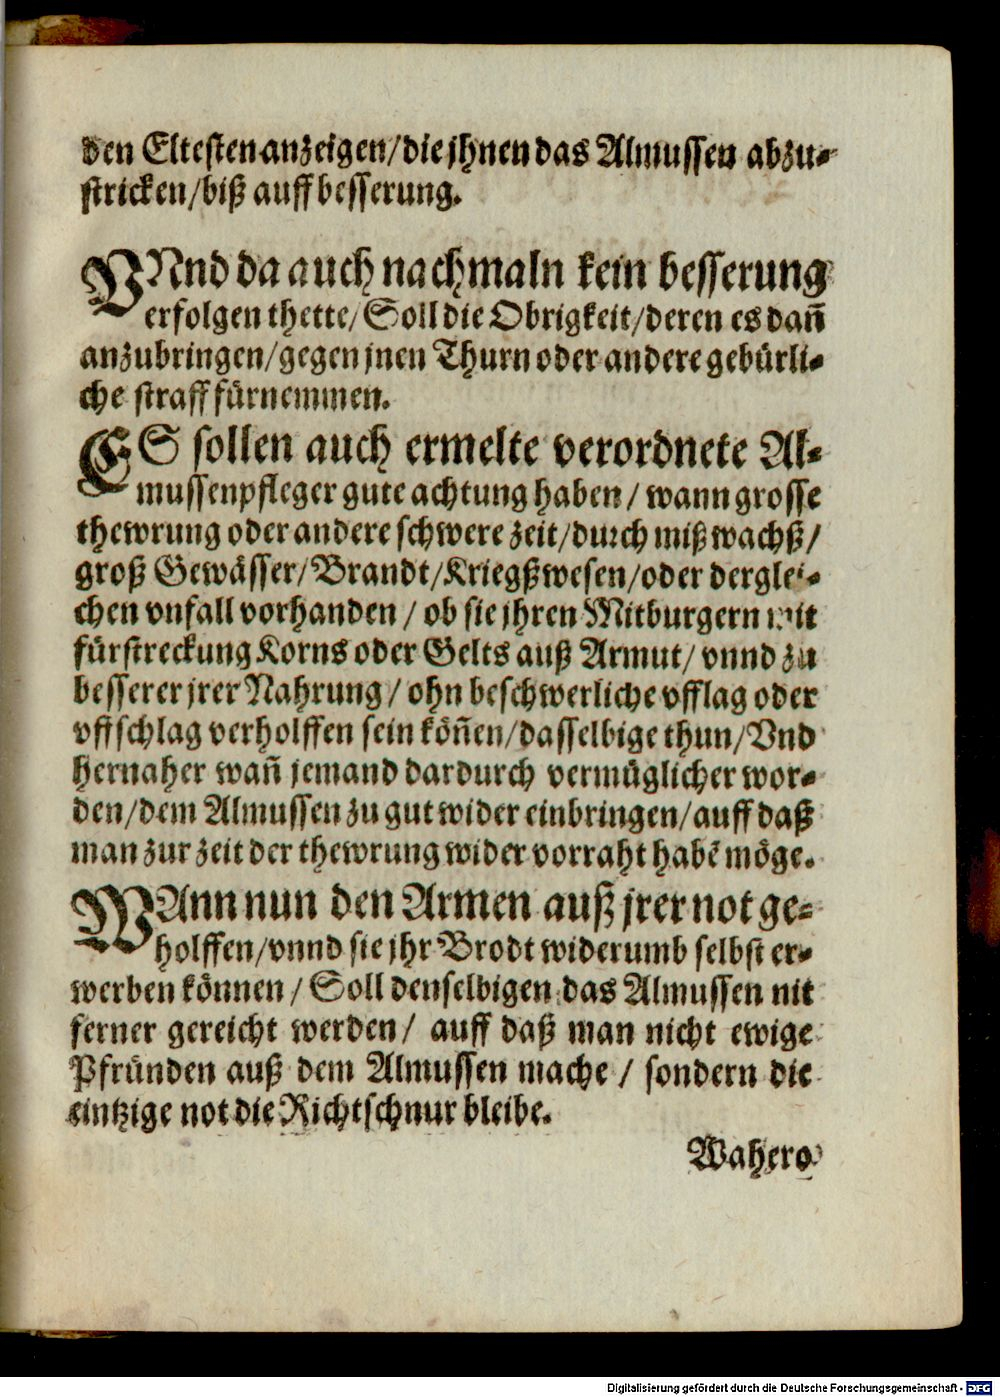 den Eltesten anzeigen/die jhnen das Almussen abzu-
stricken/biß auff besserung.
VNnd da auch nachmaln kein besserung
erfolgen thette/Soll die Obrigkeit/deren es dañ
anzubringen/gegen jnen Thurn oder andere gebürli-
che straff fürnemmen.
ES sollen auch ermelte verordnete Al-
mussenpfleger gute achtung haben/wann grosse
thewrung oder andere schwere zeit/durch mißwachß/
groß Gewässer/Brandt/Kriegßwesen/oder derglei-
chen vnfall vorhanden/ob sie jhren Mitburgern mit
fürstreckung Korns oder Gelts auß Armut/vnnd zu
besserer jrer Nahrung/ohn beschwerliche vfflag oder
vffschlag verholffen sein köñen/dasselbige thun/Vnd
hernaher wañ jemand dardurch vermüglicher wor-
den/dem Almussen zu gut wider einbringen/auff daß
man zur zeit der thewrung wider vorraht habẽ möge.
WAnn nun den Armen auß jrer not ge-
holffen/vnnd sie jhr Brodt widerumb selbst er-
werben können/Soll denselbigen das Almussen nit
ferner gereicht werden/auff daß man nicht ewige
Pfründen auß dem Almussen mache/sondern die
eintzige not die Richtschnur bleibe.
Wahero
Digitalisierung gefördert durch die Deutsche Forschungsgemeinschaft - DFG